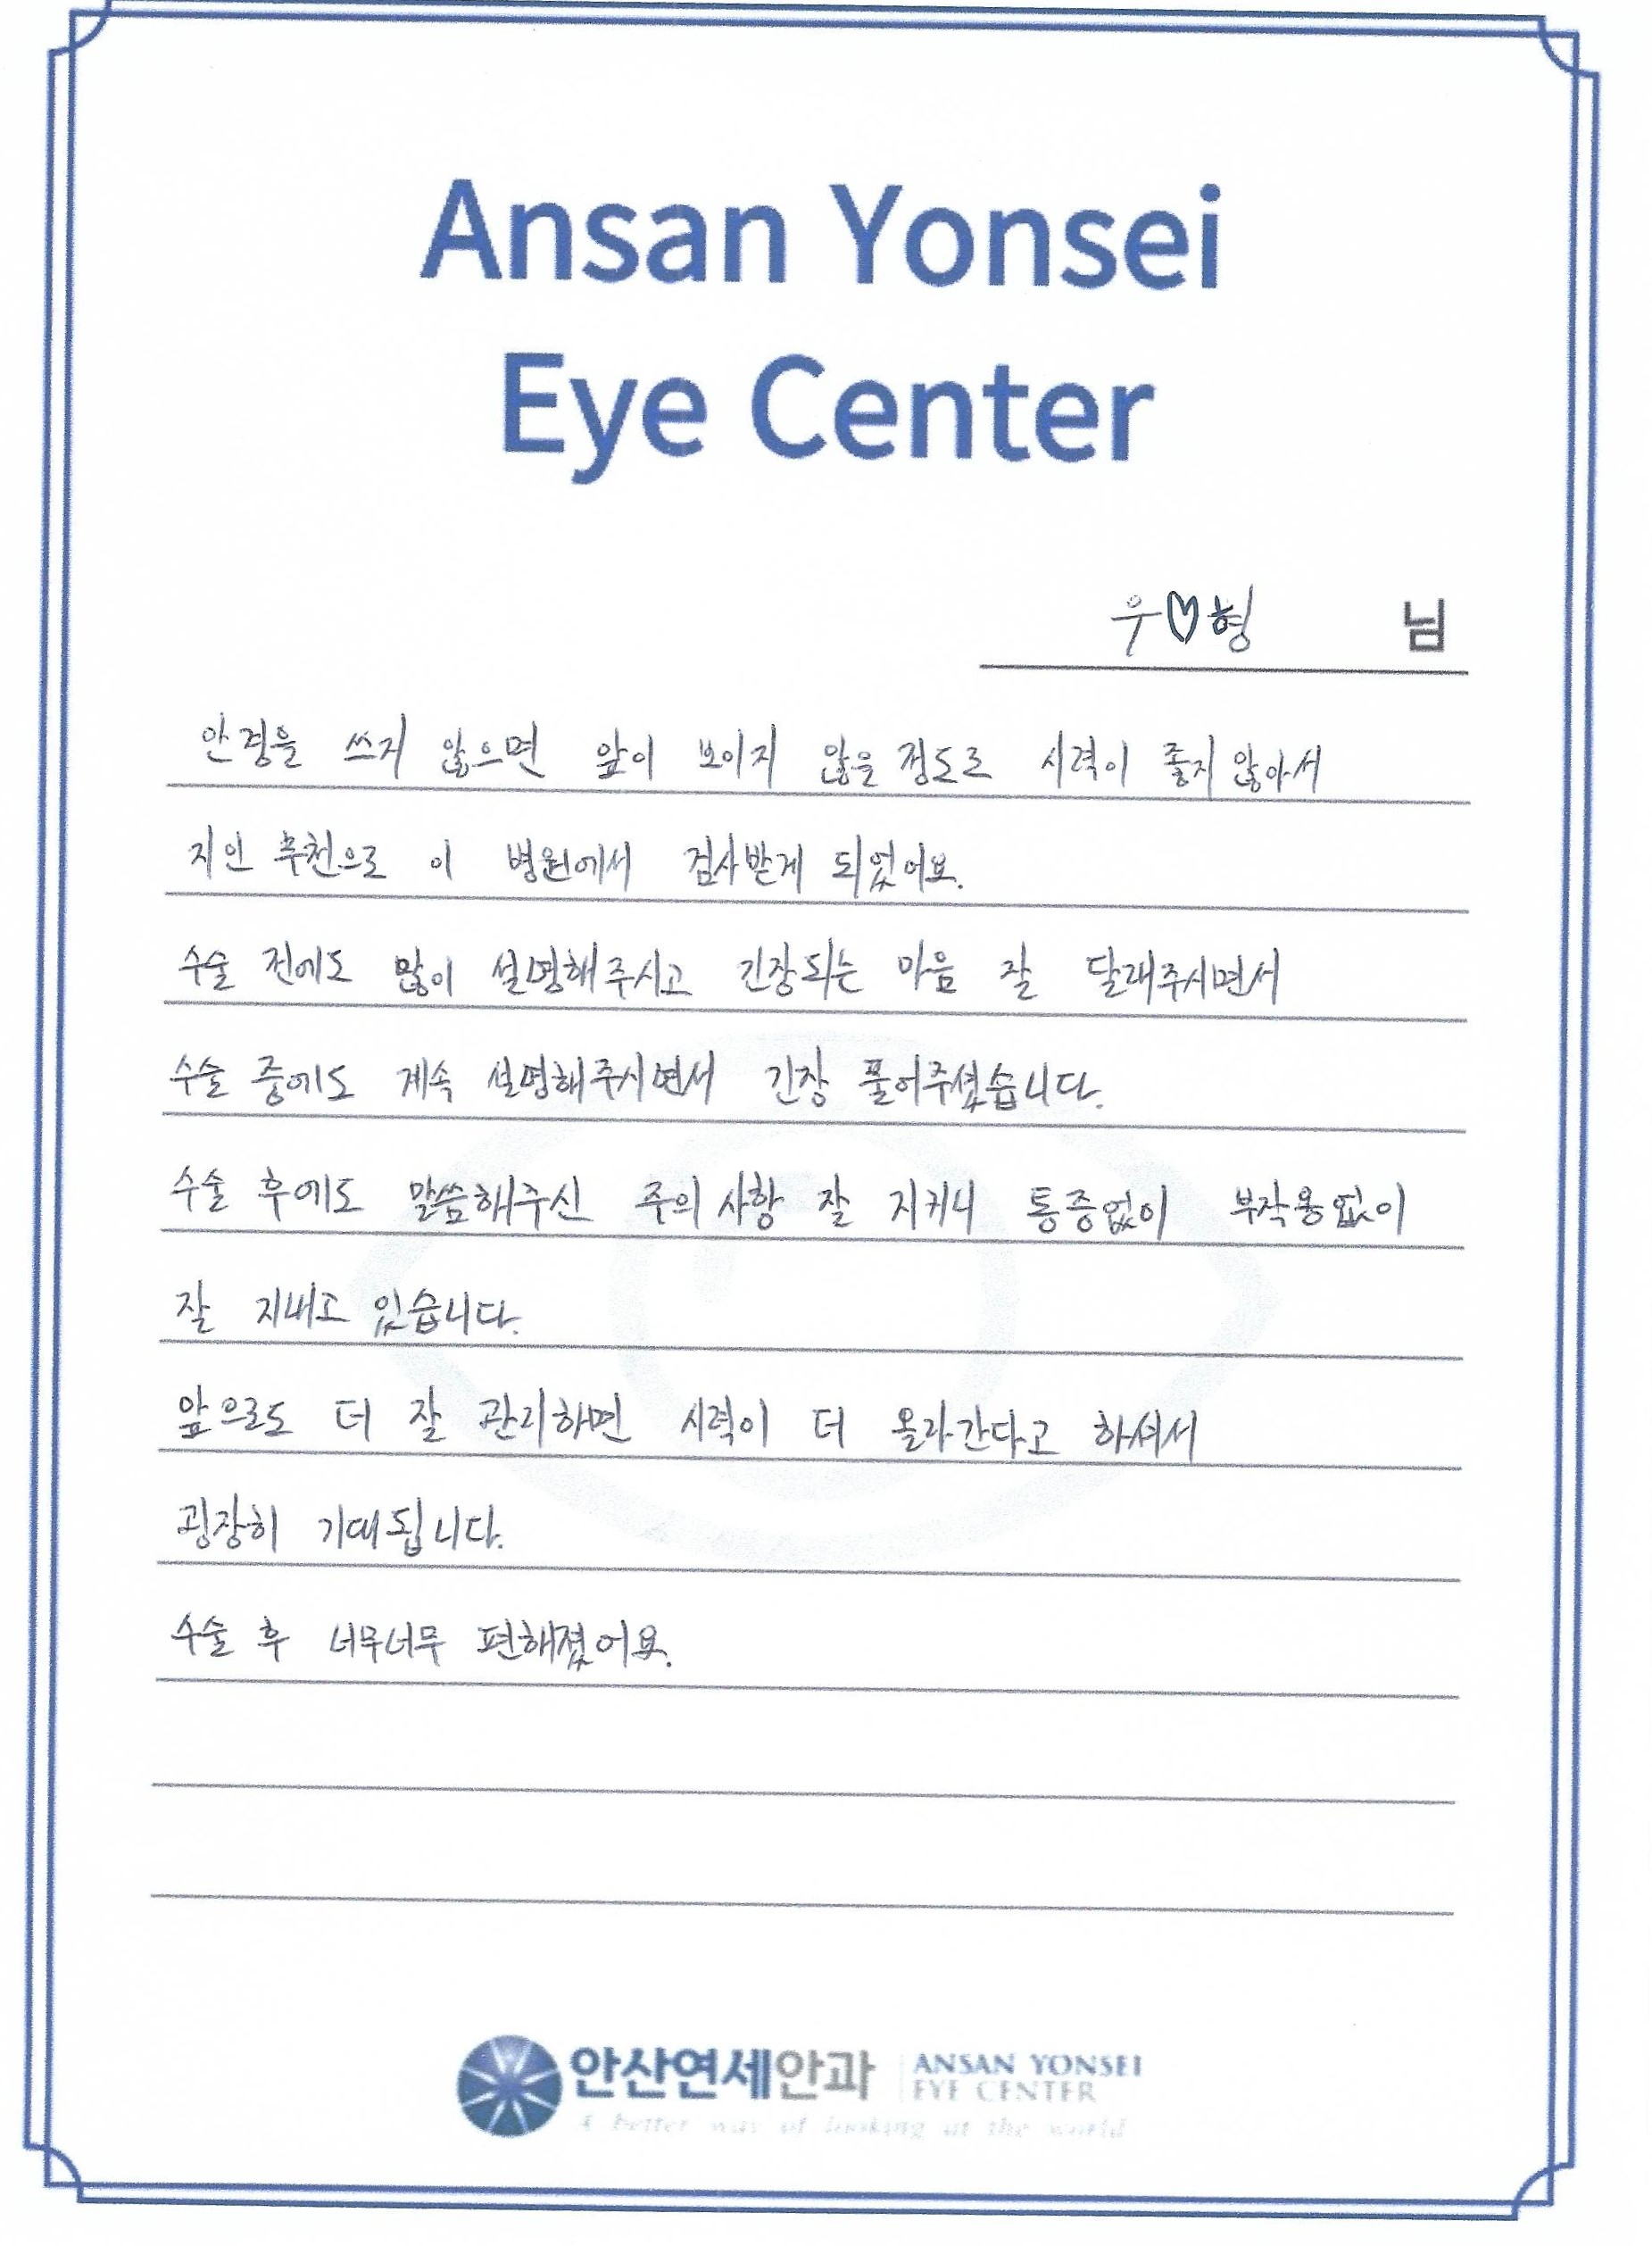 Ansan Yonsei
Eye Center
우♡형 님
안경을 쓰지 않으면 앞이 보이지 않을 정도로 시력이 좋지 않아서
지인 추천으로 이 병원에서 검사받게 되었어요.
수술 전에도 많이 설명해주시고 긴장되는 마음 잘 달래주시면서
수술 중에도 계속 설명해주시면서 긴장 풀어주셨습니다.
수술 후에도 말씀해주신 주의사항 잘 지키니 통증없이 부작용없이
잘 지내고 있습니다.
앞으로도 더 잘 관리하면 시력이 더 올라간다고 하셔서
굉장히 기대됩니다.
수술 후 너무너무 편해졌어요.
안산연세안과 ANSAN YONSEI
EYE CENTER
A better way of looking at the world